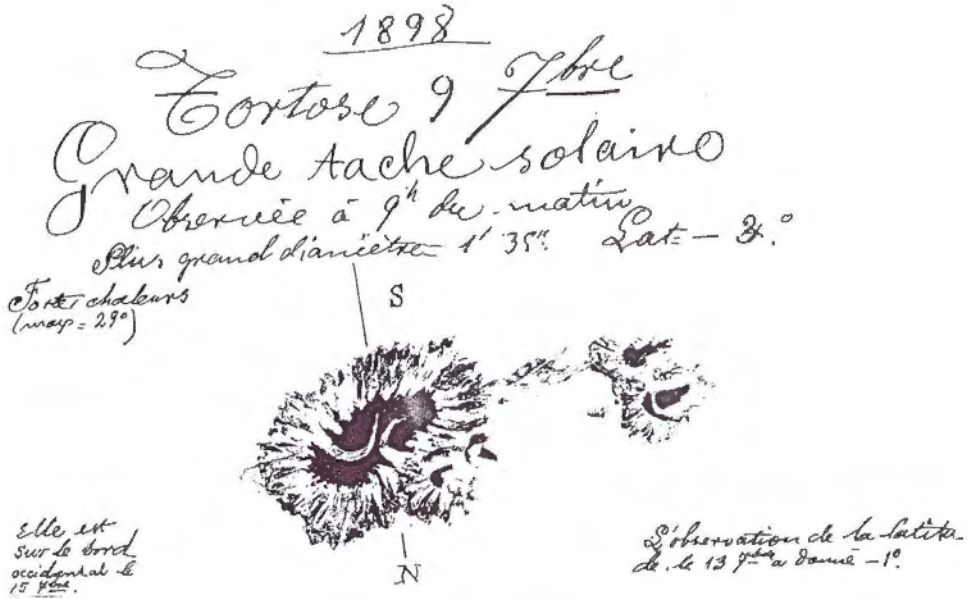 1898
Tortose 9 7bre
Grande tache solaire
Observée à 9h du matin
Plus grand diamètre 1' 35". Lat = –
Fortes chaleurs
(max = 29°)
S
N
Elle est
sur le bord
occidental le
15 7bre.
L'observation de la latitu-
de le 13 7bre a donné –1°.